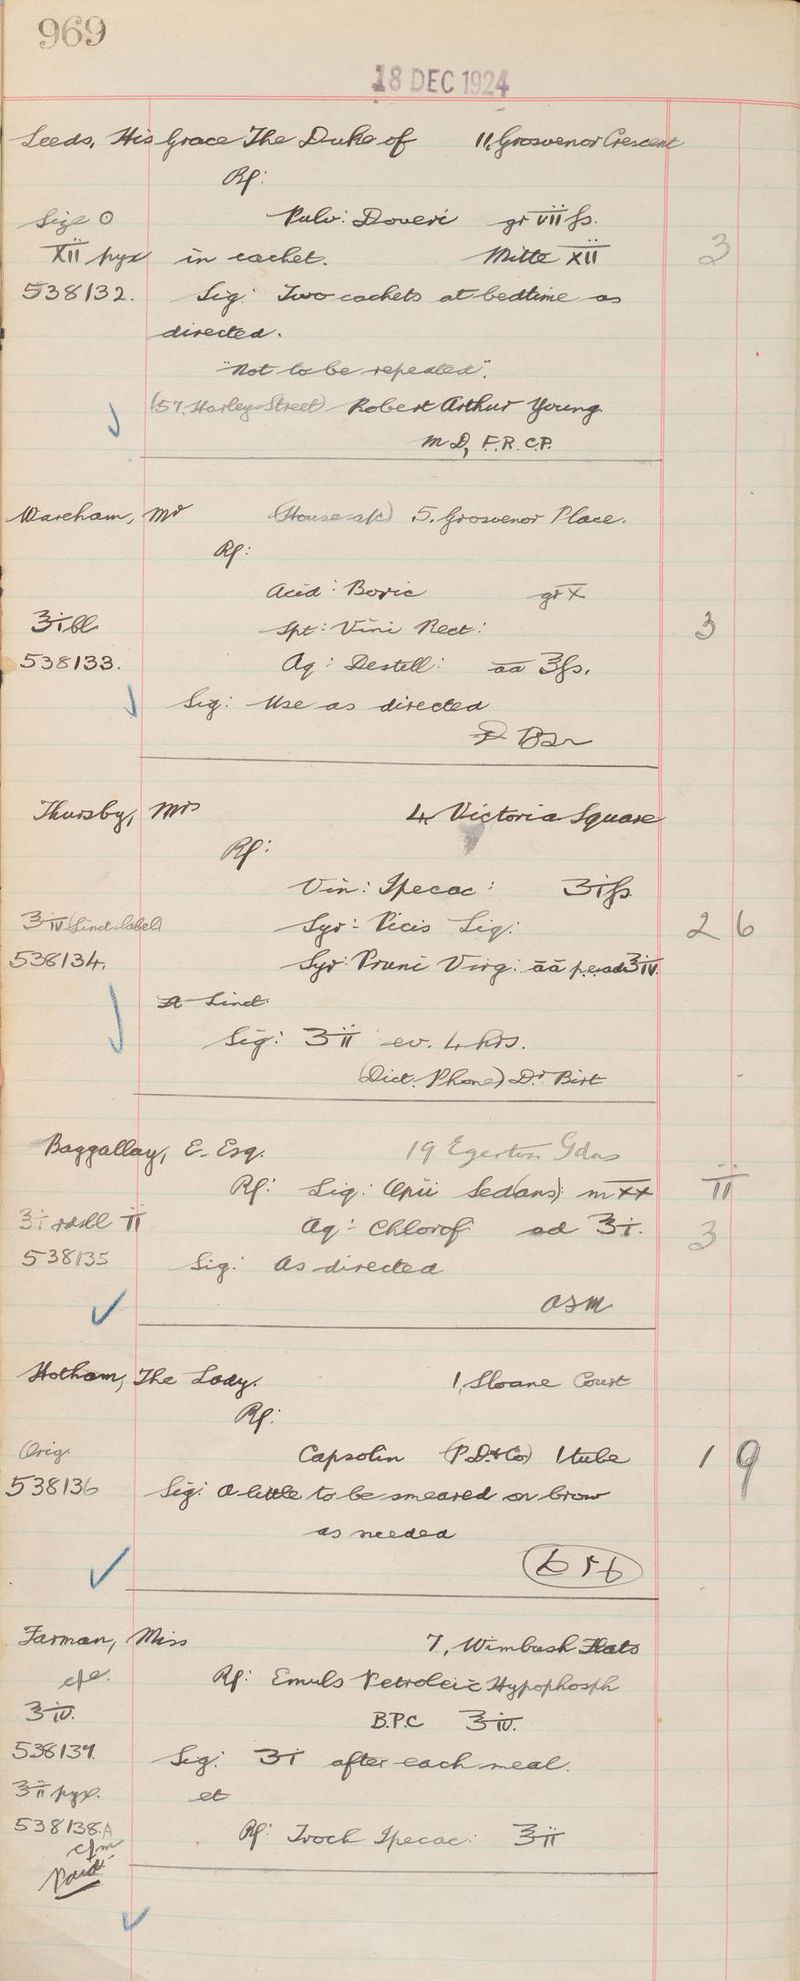 969
18 DEC 1924
Leeds, His Grace The Duke of 11, Grosvenor Crescent
Rp:
Size 0 Pulv: Doveri gr viifs.
XII pyx in cachet. Mitte XII 3
538132. Sig: Two cachets at bedtime as
directed.
"Not to be repeated".
(57, Harley Street) Robert Arthur Young
M D, F.R.C.P.
Wareham, Mr (House a/c) 5, Grosvenor Place.
Rp:
Acid: Boric gr X
Spt: Vini Rect: 3
538133. Aq: Destell: aa ℥fs.
Sig: Use as directed
Thursby, Mrs 4, Victoria Square
Rp:
Vin: Ipecac: ʒifs
℥iv (Linct label) Syr: Picis Liq: 2 6
538134. Syr: Pruni Virg: āā p. e. ad ℥iv.
Ft Linct.
Sig: ʒii ev. 4 hrs.
(Dict. Phone) Dr Birt
Baggallay, E. Esq. 19 Egerton Gdns
Rp: Liq: Opii Sed(ans): m xx II
Aq: Chlorof: ad ℥i. 3
538135 Sig: As directed
Hotham, The Lady. 1, Sloane Court
Rp:
Orig. Capsolin (P.D.&Co) 1 tube 1 9
538136 Sig: A little to be smeared on brow
as needed
656
Farman, Miss 7, Wimbush Flats
Rp: Emuls Petrolei c̄ Hypophosph
℥iv. B.P.C ℥iv.
538137. Sig: ʒi after each meal.
℥ii pyx. et
538138.A Rp: Troch Ipecac: ℥ii
Paid